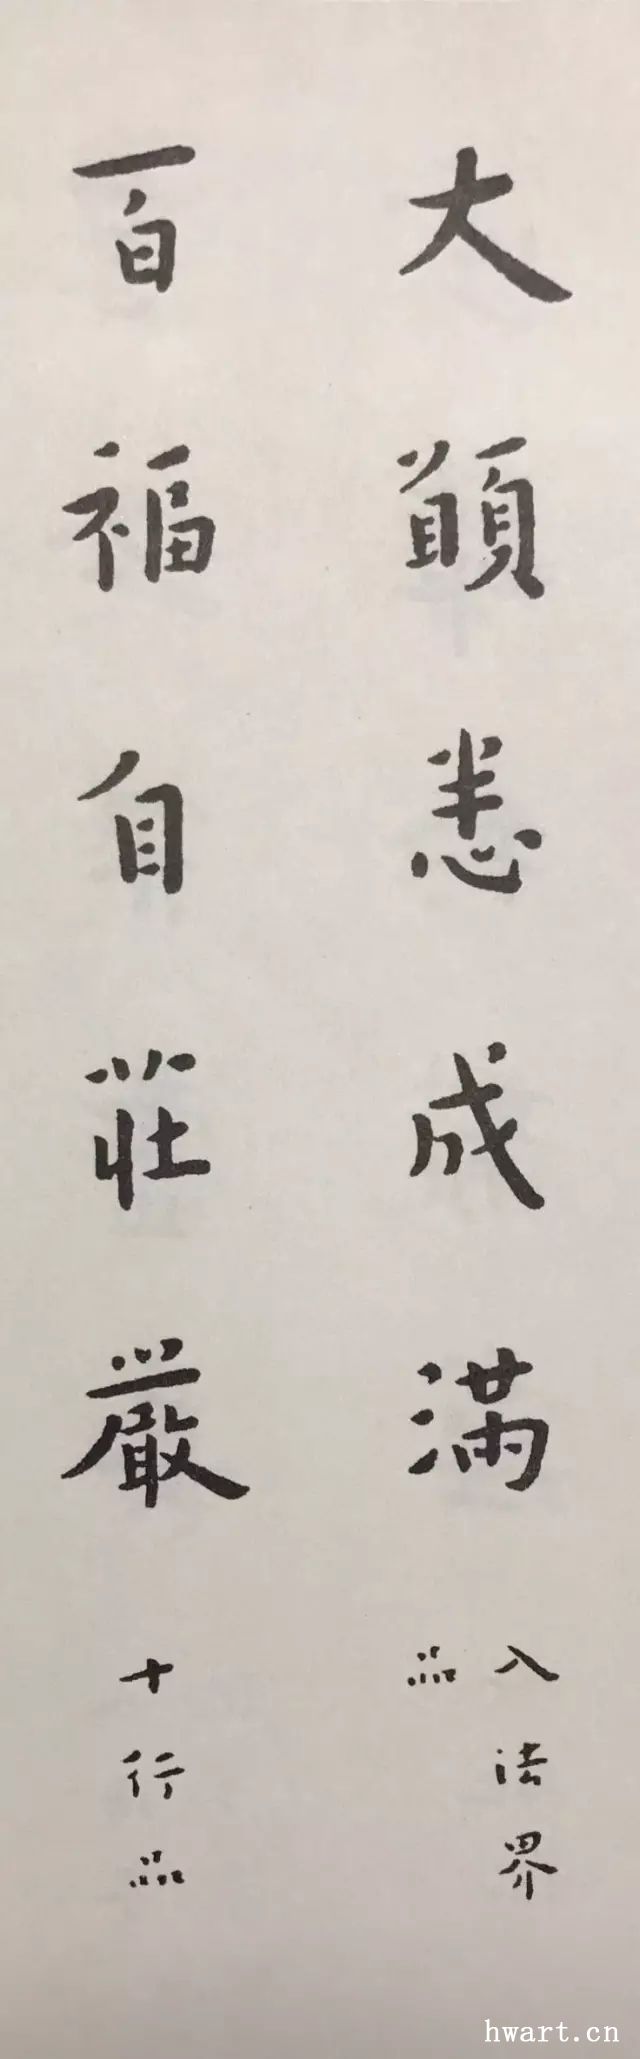 大願悉成滿
入法界
品
百福自莊嚴
十行品
hwart.cn